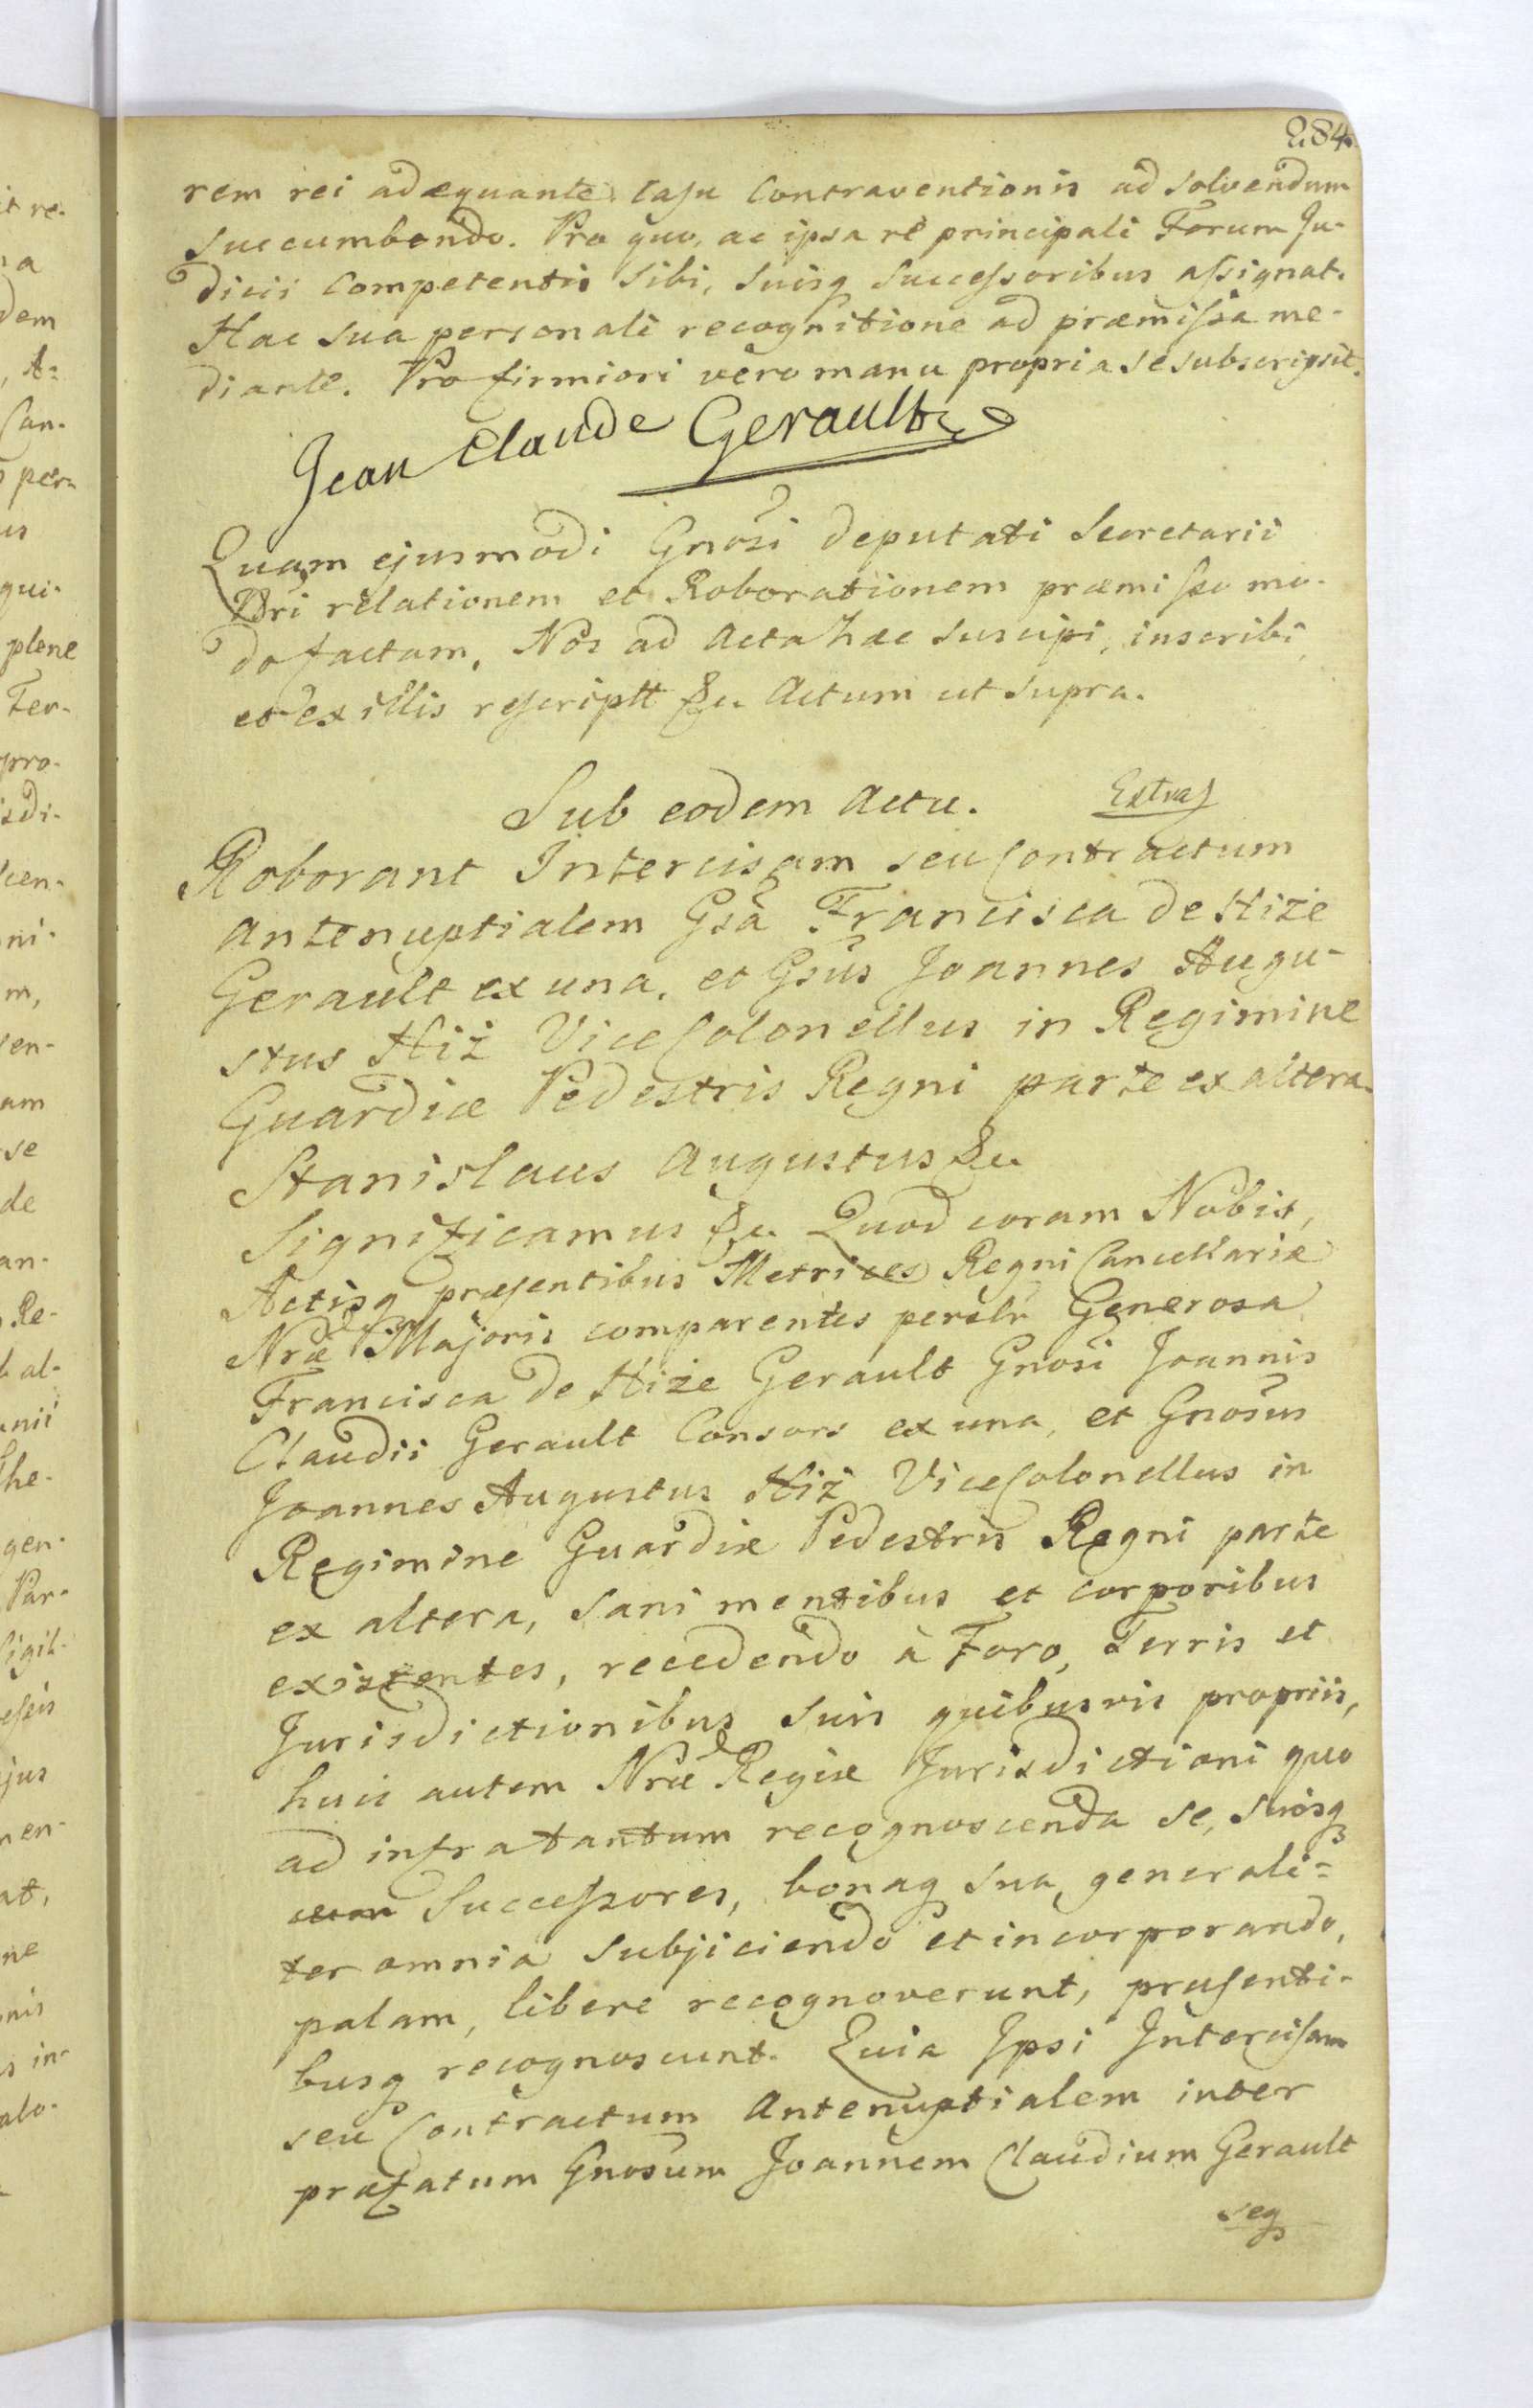 284.
rem rei adæquante casu Contraventionis ad solvendum
succumbendo. Pro quo, ac ipsa re principali Forum Ju-
dicii Competentis sibi, suisq successoribus assignat.
Hac sua personali recognitione ad præmissa me-
diante. Pro firmiori vero manu propria se subscripsit.
Jean Claude Gerault
Quam ejusmodi Gnosi deputati Secretarii
Nri relationem et Roborationem præmisso mo-
do factam, Nos ad Acta hæc suscipi, inscribi,
et ex illis rescriptt &c. Actum ut supra.
Sub eodem Actu.
Roborant Intercisam seu Contractum
Antenuptialem Gsa Francisca de Hize
Gerault ex una, et Gsus Joannes Augu-
stus Hiż ViceColonellus in Regimine
Guardiæ Pedestris Regni parte ex altera.
Stanislaus Augustus &c.
Significamus &c. Quod coram Nobis,
Actisq præsentibus Metrices Regni Cancellariæ
Nræ Majoris comparentes persolr Generosa
Francisca de Hiże Gerault Gnosi Joannis
Claudii Gerault Consors ex una, et Gnosus
Joannes Augustus Hiż ViceColonellus in
Regimine Guardiæ Pedestris Regni parte
ex altera, sani mentibus et corporibus
existentes, recedendo à Foro, Terris et
Jurisdictionibus suis quibusvis propriis,
huic autem Nræ Regiæ Jurisdictioni quo
ad infra tantum recognoscenda se, suosq
Successores, bonaq sua, generali-
ter omnia subjiciendo et incorporando,
palam, libere recognoverunt, præsenti-
busq recognoscunt. Quia Ipsi Intercisam
seu Contractum Antenuptialem inter
præfatum Gnosum Joannem Claudium Gerault
seq